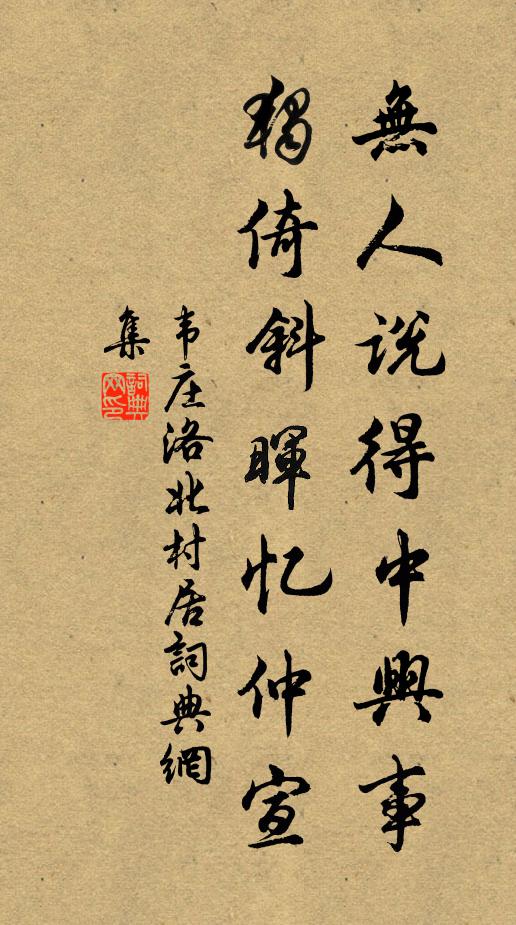 無人說得中興事
獨倚斜暉忆仲宣
韦庄洛北村居詞典網
集
詞典網印